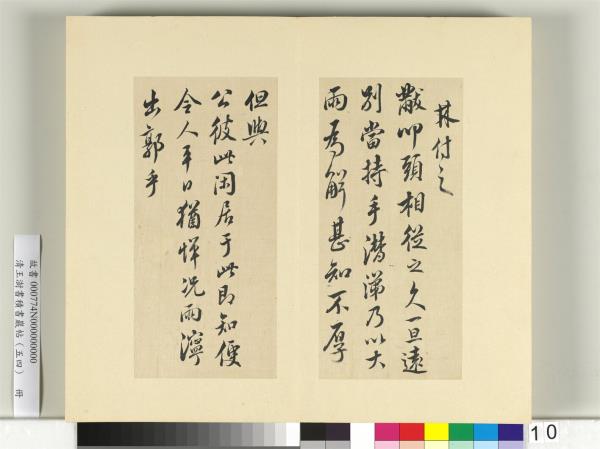 林付之
黻叩頭相從之久一旦遠
別當持手潸涕乃以大
雨為解甚知不厚
但與
公彼此閑居于此即知便
令人平日猶憚況雨濘
出郭乎
故書 000774N000000000
清王澍書積書巖帖(五四) 冊
10